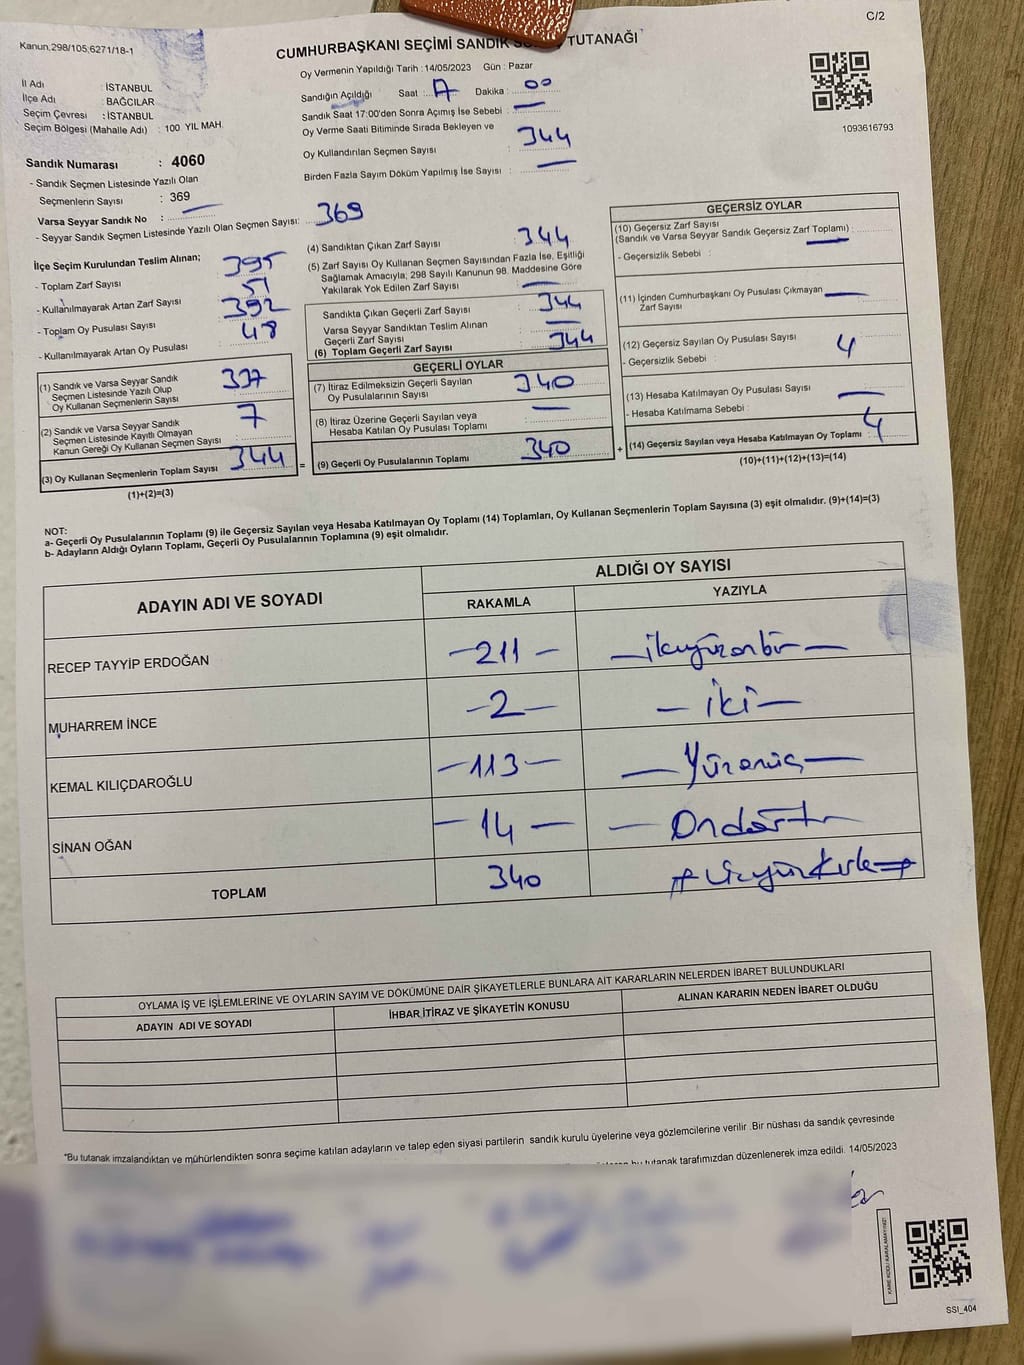 C/2
Kanun,298/105;6271/18-1
CUMHURBAŞKANI SEÇİMİ SANDIK TUTANAĞI
Oy Vermenin Yapıldığı Tarih : 14/05/2023 Gün : Pazar
İl Adı : İSTANBUL
İlçe Adı : BAĞCILAR
Seçim Çevresi : İSTANBUL
Seçim Bölgesi (Mahalle Adı) : 100. YIL MAH.
Sandık Numarası : 4060
- Sandık Seçmen Listesinde Yazılı Olan
Seçmenlerin Sayısı : 369
Varsa Seyyar Sandık No :
- Seyyar Sandık Seçmen Listesinde Yazılı Olan Seçmen Sayısı: 369
Sandığın Açıldığı Saat : Dakika : 00
Sandık Saat 17:00'den Sonra Açımış İse Sebebi : —
Oy Verme Saati Bitiminde Sırada Bekleyen ve
Oy Kullandırılan Seçmen Sayısı : 344
Birden Fazla Sayım Döküm Yapılmış İse Sayısı : —
1093616793
İlçe Seçim Kurulundan Teslim Alınan;
- Toplam Zarf Sayısı : 395
- Kullanılmayarak Artan Zarf Sayısı : 51
- Toplam Oy Pusulası Sayısı : 392
- Kullanılmayarak Artan Oy Pusulası : 48
(1) Sandık ve Varsa Seyyar Sandık
Seçmen Listesinde Yazılı Olup
Oy Kullanan Seçmenlerin Sayısı : 337
(2) Sandık ve Varsa Seyyar Sandık
Seçmen Listesinde Kayıtlı Olmayan
Kanun Gereği Oy Kullanan Seçmen Sayısı : 7
(3) Oy Kullanan Seçmenlerin Toplam Sayısı 344
(1)+(2)=(3)
(4) Sandıktan Çıkan Zarf Sayısı : 344
(5) Zarf Sayısı Oy Kullanan Seçmen Sayısından Fazla İse, Eşitliği
Sağlamak Amacıyla, 298 Sayılı Kanunun 98. Maddesine Göre
Yakılarak Yok Edilen Zarf Sayısı : —
Sandıkta Çıkan Geçerli Zarf Sayısı : 344
Varsa Seyyar Sandıktan Teslim Alınan
Geçerli Zarf Sayısı : —
(6) Toplam Geçerli Zarf Sayısı : 344
GEÇERLİ OYLAR
(7) İtiraz Edilmeksizin Geçerli Sayılan
Oy Pusulalarının Sayısı : 340
(8) İtiraz Üzerine Geçerli Sayılan veya
Hesaba Katılan Oy Pusulası Toplamı : —
= (9) Geçerli Oy Pusulalarının Toplamı 340 +
GEÇERSİZ OYLAR
(10) Geçersiz Zarf Sayısı
(Sandık ve Varsa Seyyar Sandık Geçersiz Zarf Toplamı) : —
- Geçersizlik Sebebi :
(11) İçinden Cumhurbaşkanı Oy Pusulası Çıkmayan —
Zarf Sayısı
(12) Geçersiz Sayılan Oy Pusulası Sayısı : 4
- Geçersizlik Sebebi :
(13) Hesaba Katılmayan Oy Pusulası Sayısı : —
- Hesaba Katılmama Sebebi :
(14) Geçersiz Sayılan veya Hesaba Katılmayan Oy Toplamı : 4
(10)+(11)+(12)+(13)=(14)
NOT:
a- Geçerli Oy Pusulalarının Toplamı (9) ile Geçersiz Sayılan veya Hesaba Katılmayan Oy Toplamı (14) Toplamları, Oy Kullanan Seçmenlerin Toplam Sayısına (3) eşit olmalıdır. (9)+(14)=(3)
b- Adayların Aldığı Oyların Toplamı, Geçerli Oy Pusulalarının Toplamına (9) eşit olmalıdır.
ADAYIN ADI VE SOYADI ALDIĞI OY SAYISI
RAKAMLA YAZIYLA
RECEP TAYYİP ERDOĞAN —211— —ikiyüzonbir—
MUHARREM İNCE —2— —iki—
KEMAL KILIÇDAROĞLU —113— —Yüzonüç—
SİNAN OĞAN —14— —Ondört—
TOPLAM 340 #üçyüzkırk#
OYLAMA İŞ VE İŞLEMLERİNE VE OYLARIN SAYIM VE DÖKÜMÜNE DAİR ŞİKAYETLERLE BUNLARA AİT KARARLARIN NELERDEN İBARET BULUNDUKLARI
ADAYIN ADI VE SOYADI İHBAR İTİRAZ VE ŞİKAYETİN KONUSU ALINAN KARARIN NEDEN İBARET OLDUĞU
*Bu tutanak imzalandıktan ve mühürlendikten sonra seçime katılan adayların ve talep eden siyasi partilerin sandık kurulu üyelerine veya gözlemcilerine verilir .Bir nüshası da sandık çevresinde
bu tutanak tarafımızdan düzenlenerek imza edildi. 14/05/2023
KARE KODU KARALAMAYINIZ!
SSI_404